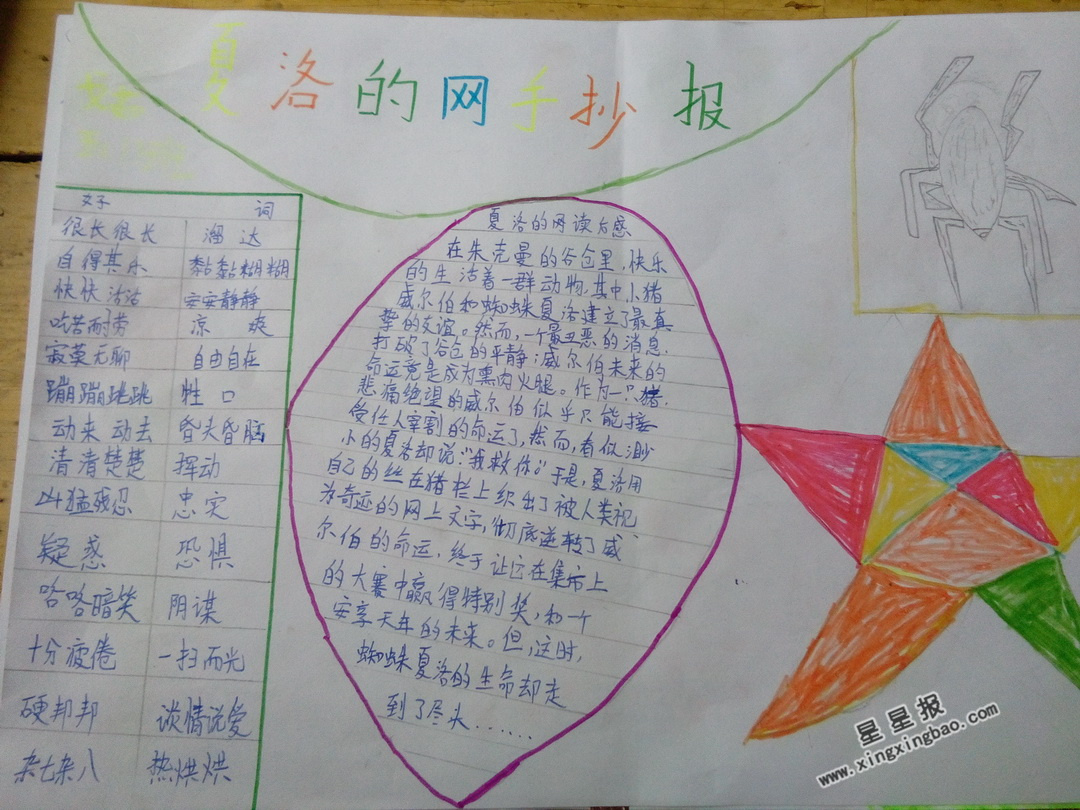 夏洛的网手抄报
好 词
很长很长 溜达
自得其乐 黏黏糊糊
快快活活 安安静静
吃苦耐劳 凉爽
寂寞无聊 自由自在
蹦蹦跳跳 牲口
动来动去 昏头昏脑
清清楚楚 挥动
凶猛残忍 忠实
疑惑 恐惧
咯咯暗笑 阴谋
十分疲倦 一扫而光
硬邦邦 谈情说爱
杂七杂八 热烘烘
夏洛的网读后感
在朱克曼的谷仓里,快乐
的生活着一群动物,其中小猪
威尔伯和蜘蛛夏洛建立了最真
挚的友谊。然而,一个最丑恶的消息,
打破了谷仓的平静:威尔伯未来的
命运竟是成为熏肉火腿。作为一只猪,
悲痛绝望的威尔伯似乎只能接
受任人宰割的命运了,然而,看似渺
小的夏洛却说:“我救你”于是,夏洛用
自己的丝在猪栏上织出了被人类视
为奇迹的网上文字,彻底逆转了威
尔伯的命运,终于让它在集市上
的大赛中赢得特别奖,和一个
安享天年的未来。但,这时,
蜘蛛夏洛的生命却走
到了尽头......
星星报
www.xingxingbao.com